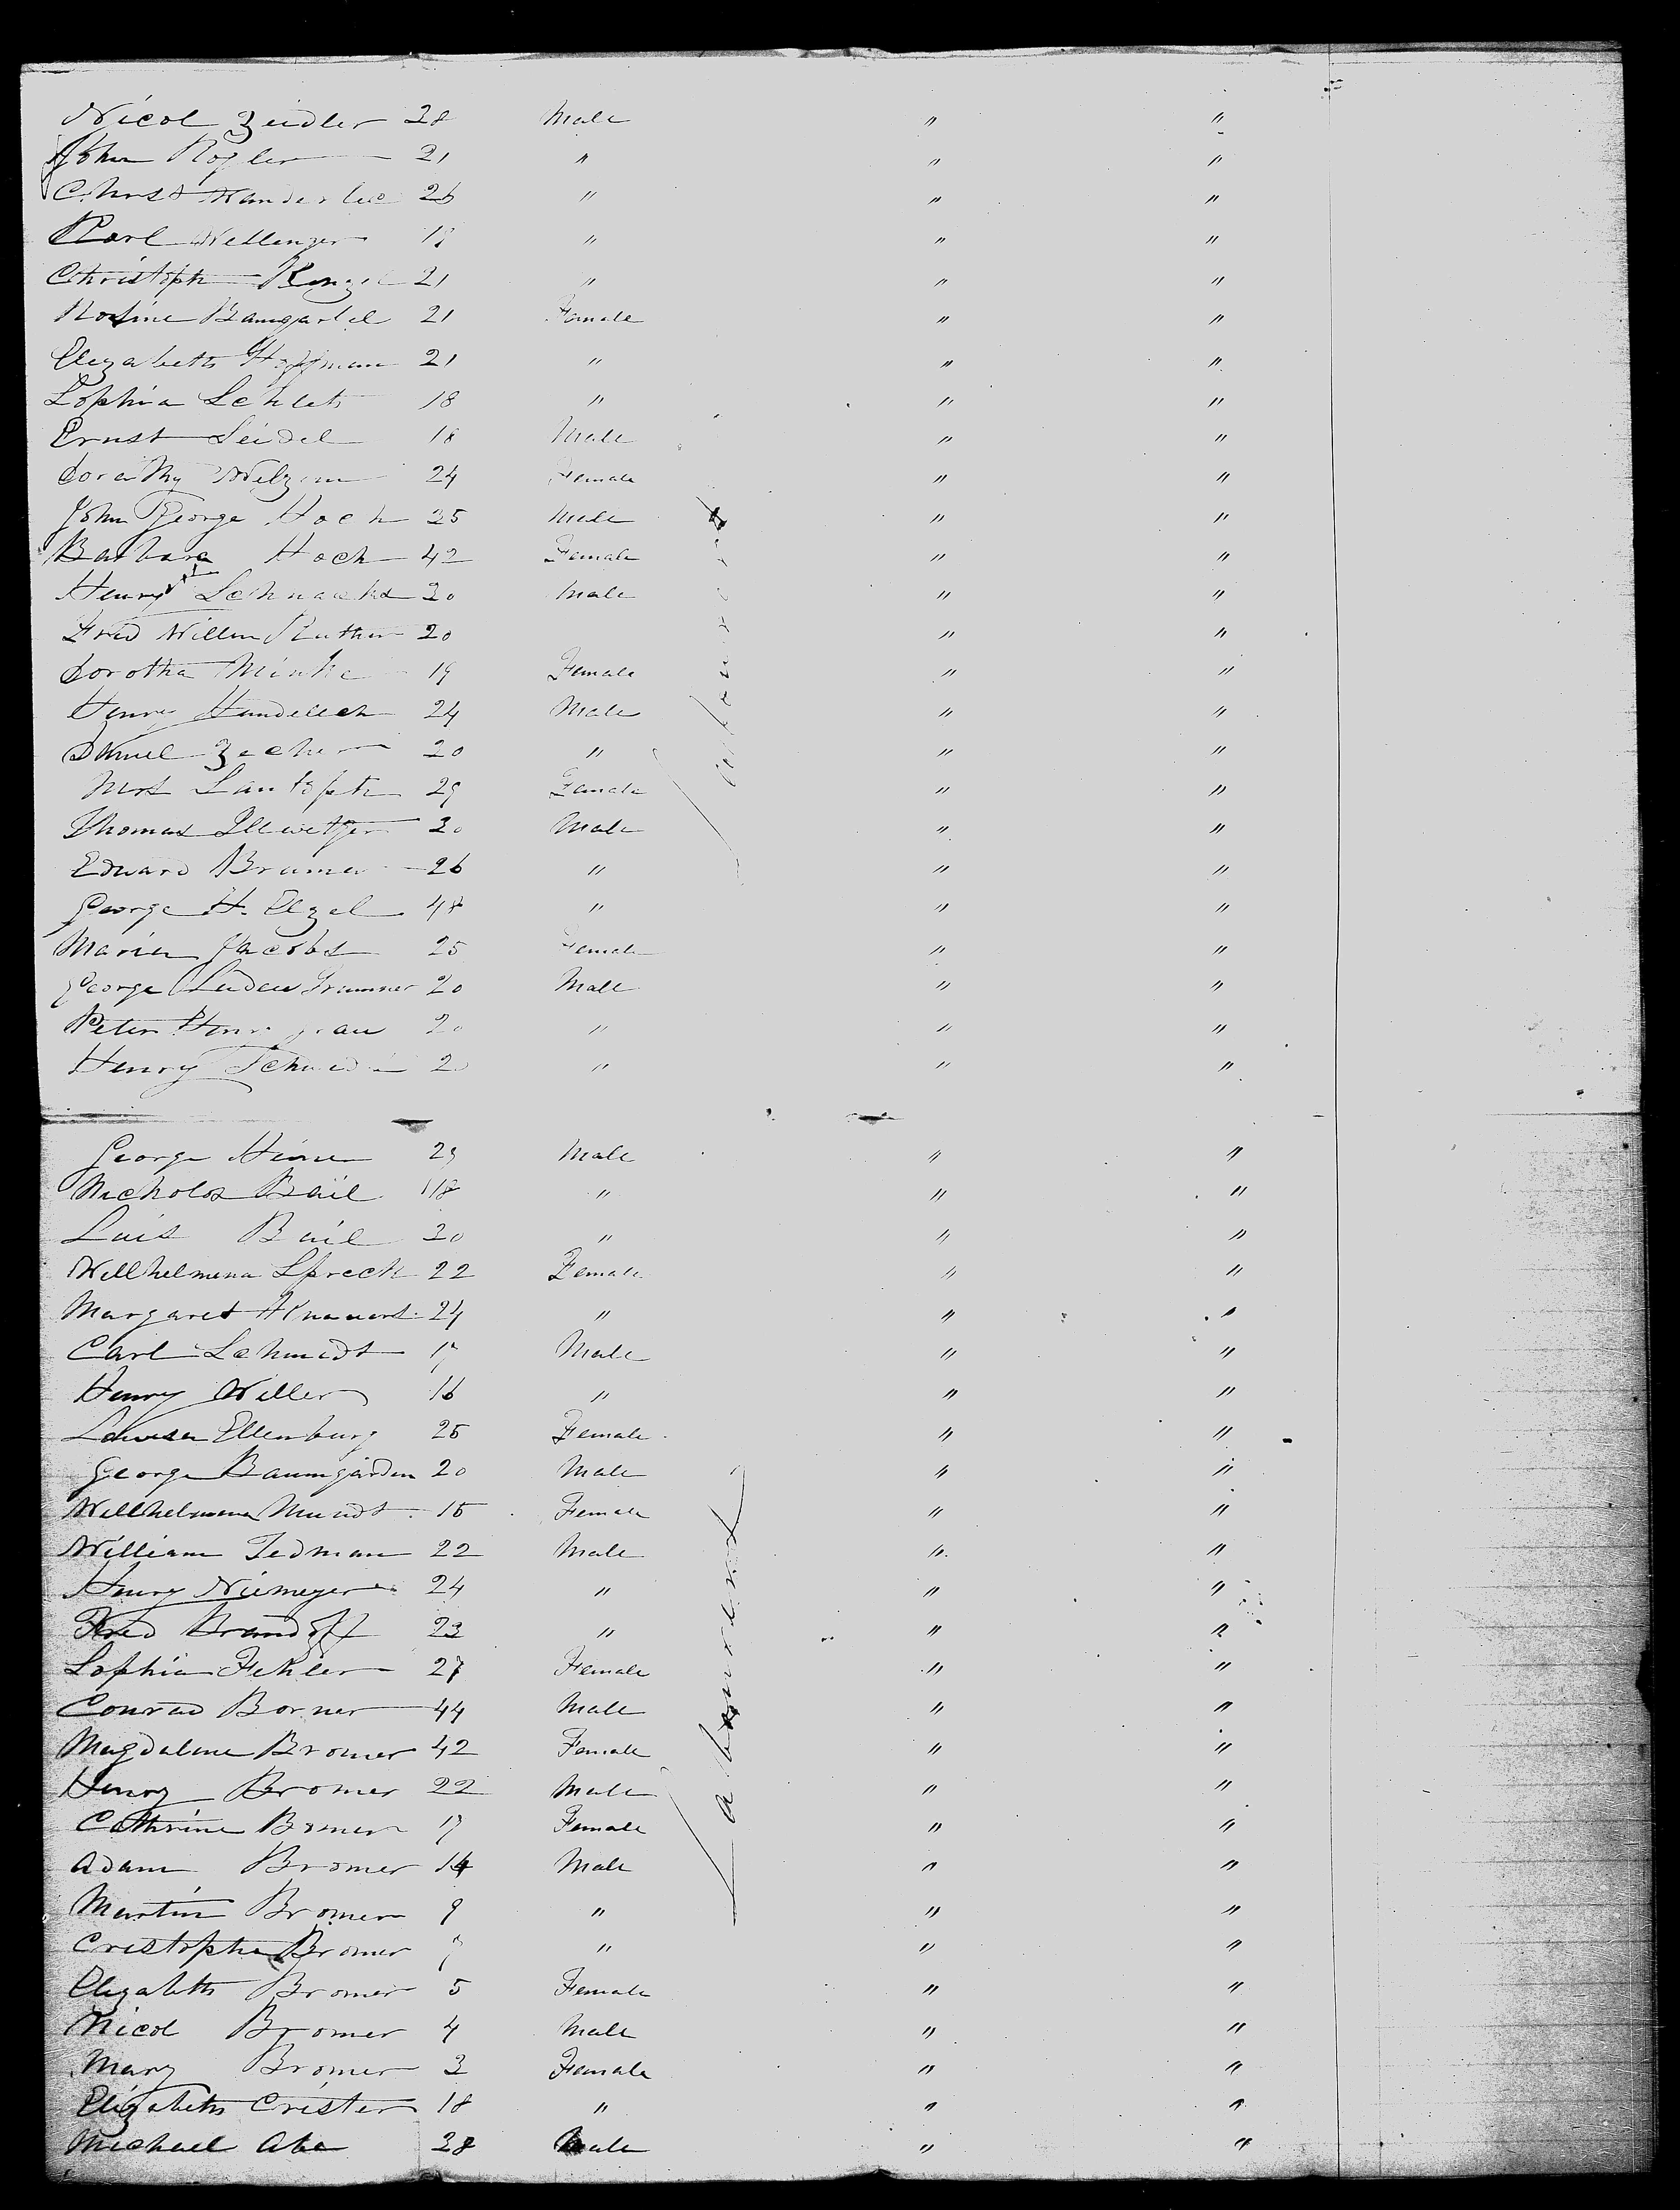 Nicol Zeidler 28 Male " "
John Rogler 21 " " "
Christ Wanderlee 26 " " "
Karl Wellenger 18 " " "
Christoph Kenzel 21 " " "
Rosine Bamgartel 21 Female " "
Elezabeth Hoffman 21 " " "
Sophia Schlets 18 " " "
Ernst Seidel 18 Male " "
Dorathy 24 Female " "
John George Hoch 35 Male " "
Barbara Hoch 42 Female " "
Henry Schnacks 20 Male " "
Fried Willm Ruthen 20 " "
Dorotha Minke 19 Female " "
Henry Hundelech 24 Male " "
Danuel Zecher 20 " " "
Mrs Lantoph 29 Female " "
Thomas 30 Male " "
Edward Brumer 26 " " "
George H. Elzel 48 " " "
Marien Jacobs 25 Female " "
George Trummer 20 Male " "
Peter 20 " " "
Henry 20 " " "
George Heine 29 Male " "
Nicholos Bail 18 " " "
Luis Bail 30 " " "
Wellhelmena Spreck 22 Female " "
Margaret 24 " " "
Carl Schmidt 17 Male " "
Henry Willer 16 " " "
Louisa Ellenburg 25 Female " "
George Baumgarden 20 Male " "
Wellhelmena Mundt 15 Female " "
William Tedman 22 Male " "
Henry Niemeyer 24 " " "
Fred Brandoff 23 " " "
Sophia Fehler 27 Female " "
Conrad Borner 44 Male " "
Magdalene Bromer 42 Female " "
Henry Bromer 22 Male " "
Cathrine Bromer 17 Female " "
Adam Bromer 14 Male " "
Martin Bromer 9 " " "
Cristophe Bromer 7 " " "
Elizabeth Bromer 5 Female " "
Nicol Bromer 4 Male " "
Mary Bromer 3 Female " "
Elizabeth Crister 18 " " "
Michael Abe 38 Male " "
Labourers